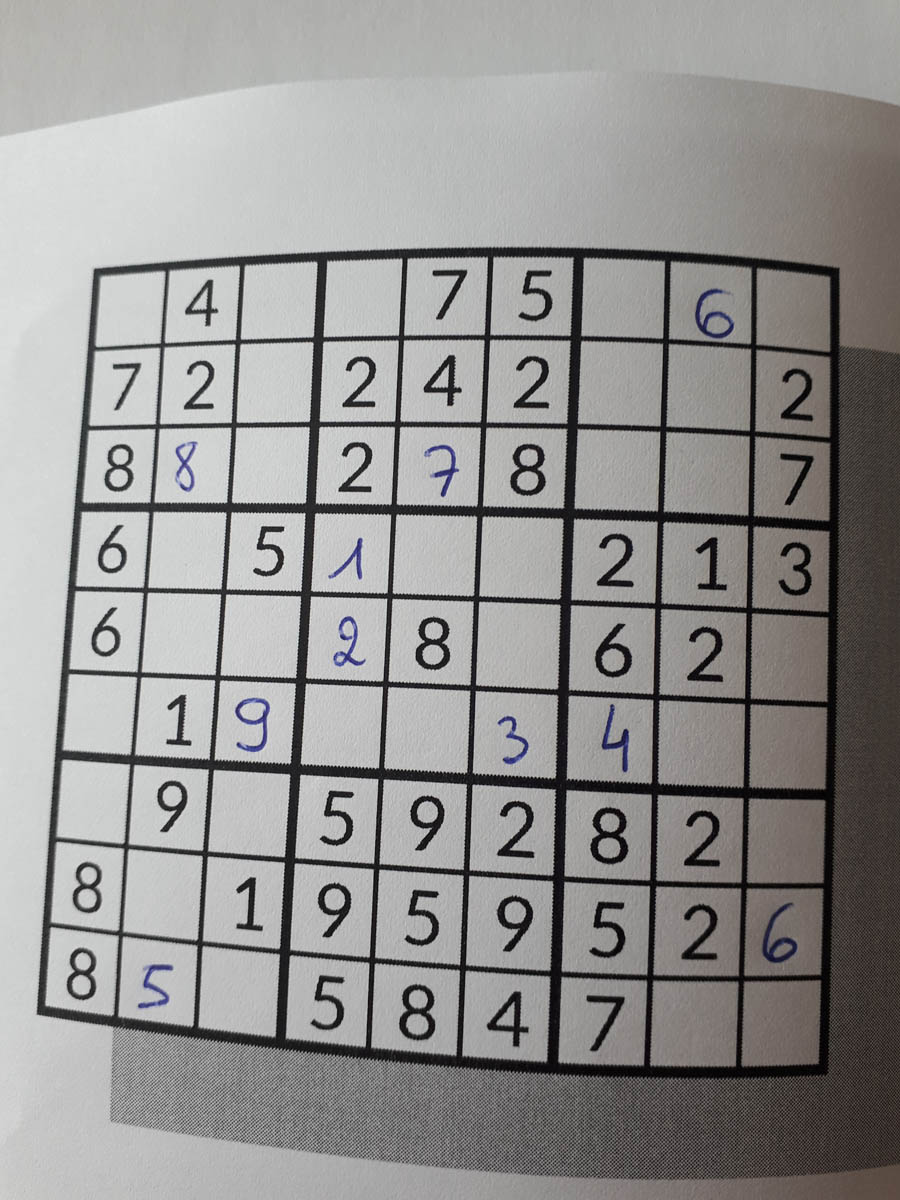 4 7 5 6
7 2 2 4 2 2
8 8 2 7 8 7
6 5 1 2 1 3
6 2 8 6 2
1 9 3 4
9 5 9 2 8 2
8 1 9 5 9 5 2 6
8 5 5 8 4 7